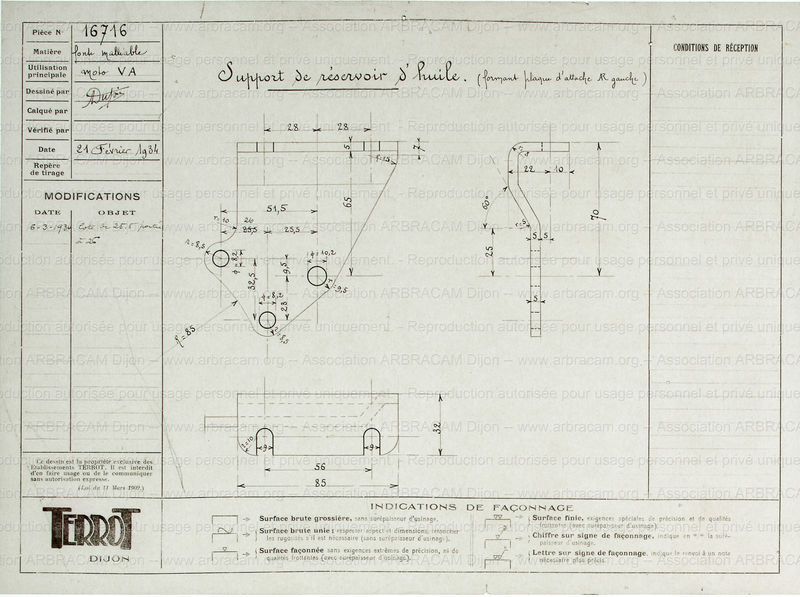 Pièce N° 16716
Matière fonte malléable
Utilisation principale moto VA
Dessiné par
Calqué par
Vérifié par
Date 21 Février 1934
Repère de tirage
MODIFICATIONS
DATE OBJET
6-3-1934 Cote de 25.5 portée
à 26
Ce dessin est la propriété exclusive des
Etablissements TERROT. Il est interdit
d'en faire usage ou de le communiquer
sans autorisation expresse.
(Loi du 11 Mars 1902.)
TERROT
DIJON
Support de réservoir d'huile. (formant plaque d'attache AR gauche)
CONDITIONS DE RÉCEPTION
28 28
5
7
65
51,5
26
25,5 25,5
r=8,5
φ=8,2
φ=10,2
9,5
32,5
φ=8,2
23
r=9,5
r=8,5
r=85
22 10
60°
70
25
5 5
5
r=10
9 9
56
85
32
INDICATIONS DE FAÇONNAGE
Surface brute grossière, sans surépaisseur d'usinage.
Surface brute unie: respecter aspect et dimensions, retoucher
les rugosités s'il est nécessaire (sans surépaisseur d'usinage).
Surface façonnée sans exigences extrêmes de précision, ni de
qualités frottantes (avec surépaisseur d'usinage).
Surface finie, exigences spéciales de précision et de qualités
frottantes (avec surépaisseur d'usinage).
Chiffre sur signe de façonnage, indique en m/m la surépaisseur d'usinage.
Lettre sur signe de façonnage, indique le renvoi à une note
nécessaire plus précis.
www.arbracam.org – Association ARBRACAM Dijon – Reproduction autorisée pour usage personnel et privé uniquement